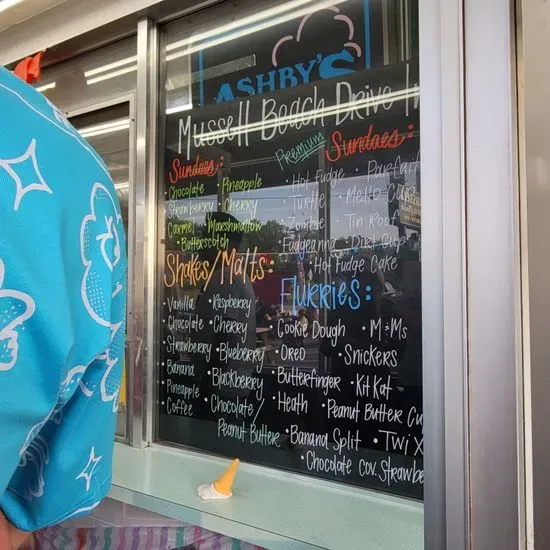 ASHBY'S
Mussell Beach Drive In
Sundaes:
Chocolate • Pineapple
Strawberry • Cherry
Carmel • Marshmallow
• Butterscotch
Premium Sundaes:
Hot Fudge • Parfait
Turtle
Zombie • Tin Roof
Fudgeanna • Dirt Cup
• Hot Fudge Cake
Shakes/Malts:
Vanilla • Raspberry
Chocolate • Cherry
Strawberry • Blueberry
Banana • Blackberry
Pineapple • Chocolate/
Coffee Peanut Butter
Flurries:
Cookie Dough • M&Ms
Oreo • Snickers
Butterfinger • Kit Kat
• Heath • Peanut Butter Cu
• Banana Split • Twix
• Chocolate cov. Strawbe